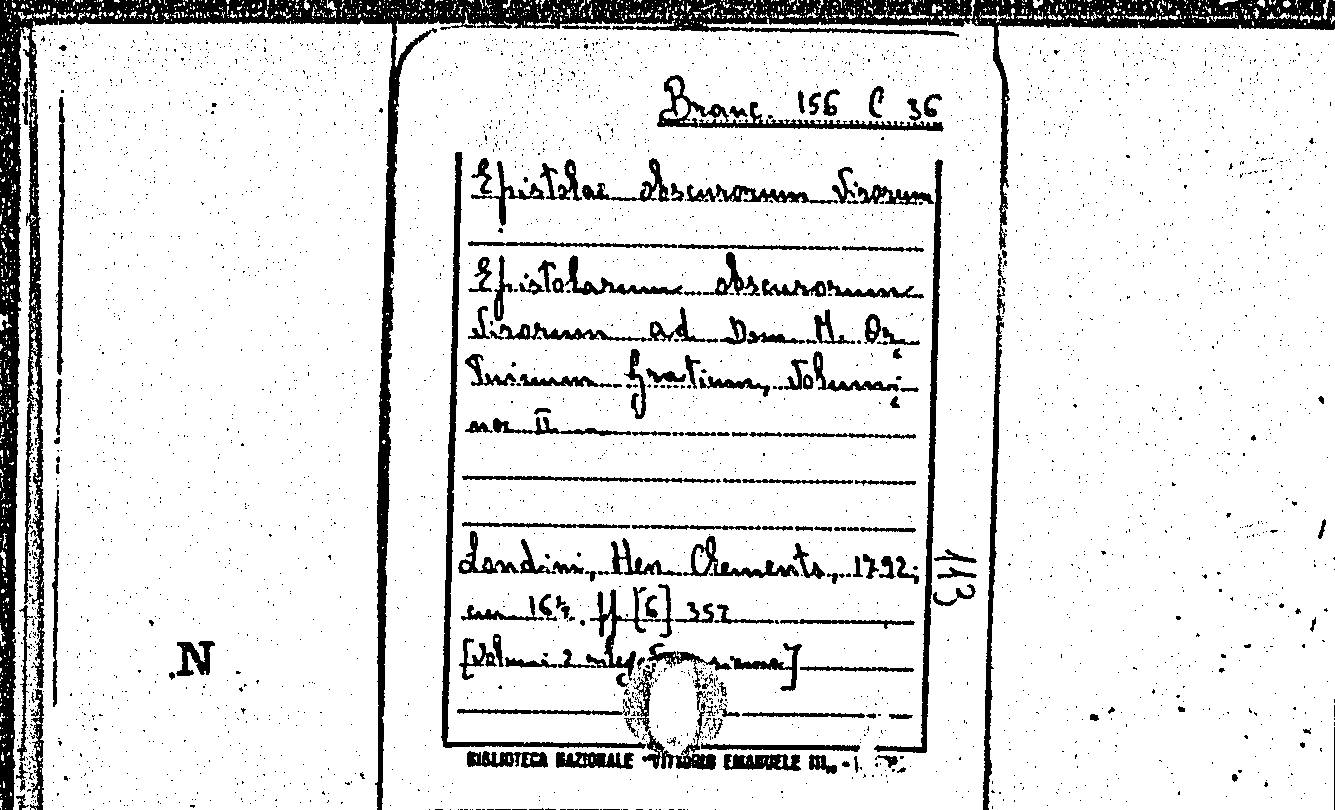 Branc. 156 C 36
Epistolae obscurorum Virorum
Epistolarum obscurorum
Virorum ad Dom. M. Or,
Tuinum Gratium, Volumi,
na II
Londini, Hen Clements, 1792;
cm 16½. ff [6] 357
[Volumi 2
113
N
BIBLIOTECA NAZIONALE "VITTORIO EMANUELE III„ -